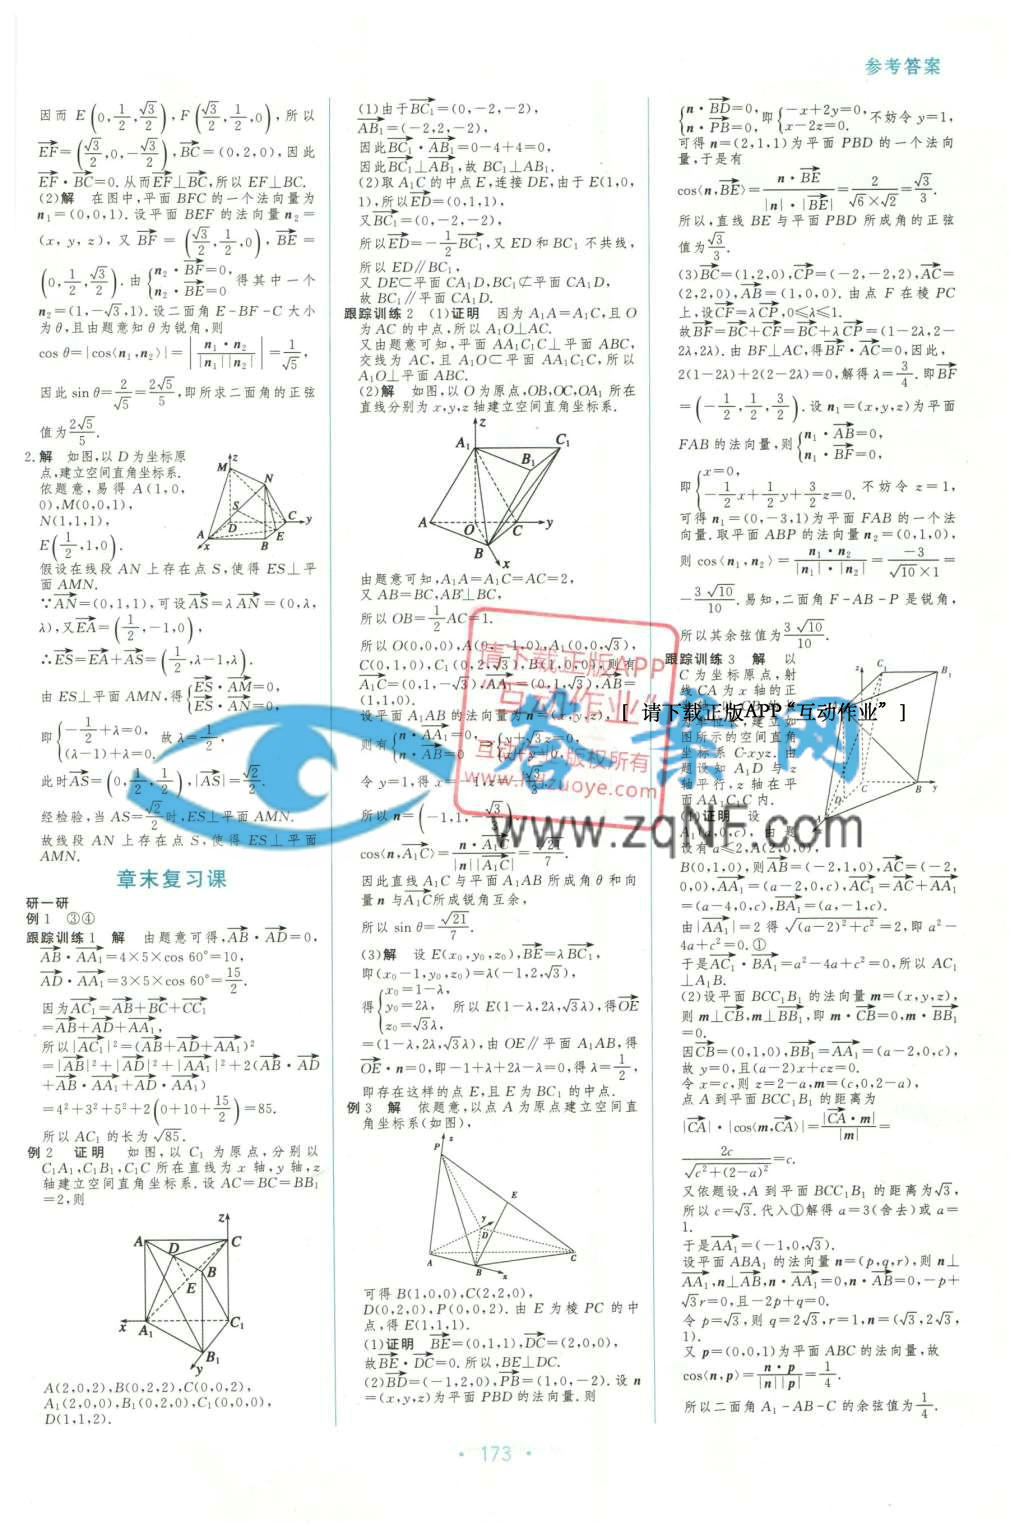 参考答案
因而 E(0,1/2,√3/2),F(√3/2,1/2,0),所以
EF→=(√3/2,0,-√3/2),BC→=(0,2,0),因此
EF→·BC→=0.从而EF→⊥BC→,所以 EF⊥BC.
(2)解 在图中,平面 BFC 的一个法向量为
n₁=(0,0,1).设平面 BEF 的法向量 n₂=
(x,y,z),又 BF→=(√3/2,1/2,0),BE→=
(0,1/2,√3/2).由{n₂·BF→=0, n₂·BE→=0 得其中一个
n₂=(1,-√3,1).设二面角 E-BF-C 大小
为θ,且由题意知θ为锐角,则
cos θ=|cos⟨n₁,n₂⟩|=|n₁·n₂/|n₁||n₂||=1/√5,
因此 sin θ=2/√5=2√5/5,即所求二面角的正弦
值为2√5/5.
2.解 如图,以 D 为坐标原
点,建立空间直角坐标系.
依题意,易得 A(1,0,
0),M(0,0,1),
N(1,1,1),
E(1/2,1,0).
z
M
N
S
D
C
y
A
B
E
x
假设在线段 AN 上存在点 S,使得 ES⊥平
面 AMN.
∵AN→=(0,1,1),可设AS→=λAN→=(0,λ,
λ),又EA→=(1/2,-1,0),
∴ES→=EA→+AS→=(1/2,λ-1,λ).
由 ES⊥平面 AMN,得{ES→·AM→=0, ES→·AN→=0,
即{-1/2+λ=0, (λ-1)+λ=0, 故λ=1/2,
此时AS→=(0,1/2,1/2),|AS→|=√2/2.
经检验,当 AS=√2/2时,ES⊥平面 AMN.
故线段 AN 上存在点 S,使得 ES⊥平面
AMN.
章末复习课
研一研
例 1 ③④
跟踪训练 1 解 由题意可得,AB→·AD→=0,
AB→·AA₁→=4×5×cos 60°=10,
AD→·AA₁→=3×5×cos 60°=15/2.
因为AC₁→=AB→+BC→+CC₁→
=AB→+AD→+AA₁→,
所以|AC₁→|²=(AB→+AD→+AA₁→)²
=|AB→|²+|AD→|²+|AA₁→|²+2(AB→·AD→
+AB→·AA₁→+AD→·AA₁→)
=4²+3²+5²+2(0+10+15/2)=85.
所以 AC₁ 的长为√85.
例 2 证明 如图,以 C₁ 为原点,分别以
C₁A₁,C₁B₁,C₁C 所在直线为 x 轴,y 轴,z
轴建立空间直角坐标系.设 AC=BC=BB₁
=2,则
z
A
C
D
B
E
x
A₁
C₁
B₁
y
A(2,0,2),B(0,2,2),C(0,0,2),
A₁(2,0,0),B₁(0,2,0),C₁(0,0,0),
D(1,1,2).
(1)由于BC₁→=(0,-2,-2),
AB₁→=(-2,2,-2),
因此BC₁→·AB₁→=0-4+4=0,
因此BC₁→⊥AB₁→,故 BC₁⊥AB₁.
(2)取 A₁C 的中点 E,连接 DE,由于 E(1,0,
1),所以ED→=(0,1,1),
又BC₁→=(0,-2,-2),
所以ED→=-1/2BC₁→,又 ED 和 BC₁ 不共线,
所以 ED∥BC₁,
又 DE⊂平面 CA₁D,BC₁⊄平面 CA₁D,
故 BC₁∥平面 CA₁D.
跟踪训练 2 (1)证明 因为 A₁A=A₁C,且 O
为 AC 的中点,所以 A₁O⊥AC.
又由题意可知,平面 AA₁C₁C⊥平面 ABC,
交线为 AC,且 A₁O⊂平面 AA₁C₁C,所以
A₁O⊥平面 ABC.
(2)解 如图,以 O 为原点,OB,OC,OA₁ 所在
直线分别为 x,y,z 轴建立空间直角坐标系.
z
A₁
C₁
B₁
A
O
C
y
B
x
由题意可知,A₁A=A₁C=AC=2,
又 AB=BC,AB⊥BC,
所以 OB=1/2AC=1.
所以O(0,0,0),A(0,-1,0),A₁(0,0,√3),
C(0,1,0),C₁(0,2,√3),B(1,0,0),则有
A₁C→=(0,1,-√3),AA₁→=(0,1,√3),AB→=
(1,1,0).
设平面 A₁AB 的法向量为 n=(x,y,z),
则有{n·AA₁→=0, n·AB→=0 ⇒{y+√3z=0, x+y=0,
令 y=1,得 x=-1,z=-√3/3,
所以 n=(-1,1,-√3/3).
cos⟨n,A₁C→⟩=n·A₁C→/|n||A₁C→|=√21/7.
因此直线 A₁C 与平面 A₁AB 所成角 θ 和向
量 n 与A₁C→所成锐角互余,
所以 sin θ=√21/7.
(3)解 设 E(x₀,y₀,z₀),BE→=λBC₁→,
即(x₀-1,y₀,z₀)=λ(-1,2,√3),
得{x₀=1-λ, y₀=2λ, z₀=√3λ, 所以 E(1-λ,2λ,√3λ),得OE→
=(1-λ,2λ,√3λ),由 OE∥平面 A₁AB,得
OE→·n=0,即-1+λ+2λ-λ=0,得λ=1/2,
即存在这样的点 E,且 E 为 BC₁ 的中点.
例 3 解 依题意,以点 A 为原点建立空间直
角坐标系(如图),
z
P
E
y
D
A
B
C
x
可得 B(1,0,0),C(2,2,0),
D(0,2,0),P(0,0,2).由 E 为棱 PC 的中
点,得 E(1,1,1).
(1)证明 BE→=(0,1,1),DC→=(2,0,0),
故BE→·DC→=0.所以,BE⊥DC.
(2)BD→=(-1,2,0),PB→=(1,0,-2).设 n
=(x,y,z)为平面 PBD 的法向量.则
{n·BD→=0, n·PB→=0, 即{-x+2y=0, x-2z=0. 不妨令 y=1,
可得 n=(2,1,1)为平面 PBD 的一个法向
量,于是有
cos⟨n,BE→⟩=n·BE→/|n|·|BE→|=2/√6×√2=√3/3.
所以,直线 BE 与平面 PBD 所成角的正弦
值为√3/3.
(3)BC→=(1,2,0),CP→=(-2,-2,2),AC→=
(2,2,0),AB→=(1,0,0).由点 F 在棱 PC
上,设CF→=λCP→,0≤λ≤1.
故BF→=BC→+CF→=BC→+λCP→=(1-2λ,2-
2λ,2λ).由 BF⊥AC,得BF→·AC→=0,因此,
2(1-2λ)+2(2-2λ)=0,解得 λ=3/4.即BF→
=(-1/2,1/2,3/2).设 n₁=(x,y,z)为平面
FAB 的法向量,则{n₁·AB→=0, n₁·BF→=0,
即{x=0, -1/2x+1/2y+3/2z=0. 不妨令 z=1,
可得 n₁=(0,-3,1)为平面 FAB 的一个法
向量.取平面 ABP 的法向量 n₂=(0,1,0),
则 cos⟨n₁,n₂⟩=n₁·n₂/|n₁|·|n₂|=-3/√10×1=
-3√10/10.易知,二面角 F-AB-P 是锐角,
所以其余弦值为3√10/10.
跟踪训练 3 解 以
C 为坐标原点,射
线 CA 为 x 轴的正
图所示的空间直角
坐标系 C-xyz.由
题设知 A₁D 与 z
轴平行,z 轴在平
面 AA₁C₁C 内.
z
C₁
B₁
D
C
B
y
(1)证明 设
A₁(a,0,c),由题
设有 a≤2,A(2,0,0),
B(0,1,0),则AB→=(-2,1,0),AC→=(-2,
0,0),AA₁→=(a-2,0,c),AC₁→=AC→+AA₁→
=(a-4,0,c),BA₁→=(a,-1,c).
由|AA₁→|=2 得 √(a-2)²+c²=2,即 a²-
4a+c²=0.①
于是AC₁→·BA₁→=a²-4a+c²=0,所以 AC₁
⊥A₁B.
(2)设平面 BCC₁B₁ 的法向量 m=(x,y,z),
则 m⊥CB→,m⊥BB₁→,即 m·CB→=0,m·BB₁→
=0.
因CB→=(0,1,0),BB₁→=AA₁→=(a-2,0,c),
故 y=0,且(a-2)x+cz=0.
令 x=c,则 z=2-a,m=(c,0,2-a),
点 A 到平面 BCC₁B₁ 的距离为
|CA→|·|cos⟨m,CA→⟩|=|CA→·m|/|m|=
2c/√c²+(2-a)²=c.
又依题设,A 到平面 BCC₁B₁ 的距离为√3,
所以 c=√3.代入①解得 a=3(舍去)或 a=
1.
于是AA₁→=(-1,0,√3).
设平面 ABA₁ 的法向量 n=(p,q,r),则 n⊥
AA₁→,n⊥AB→,n·AA₁→=0,n·AB→=0,-p+
√3r=0,且-2p+q=0.
令 p=√3,则 q=2√3,r=1,n=(√3,2√3,
1).
又 p=(0,0,1)为平面 ABC 的法向量,故
cos⟨n,p⟩=n·p/|n||p|=1/4.
所以二面角 A₁-AB-C 的余弦值为1/4.
· 173 ·
请下载正版APP
“互动作业”
互动作业 版权所有
[ 请下载正版APP“互动作业” ]
答案网
www.zqNF.com